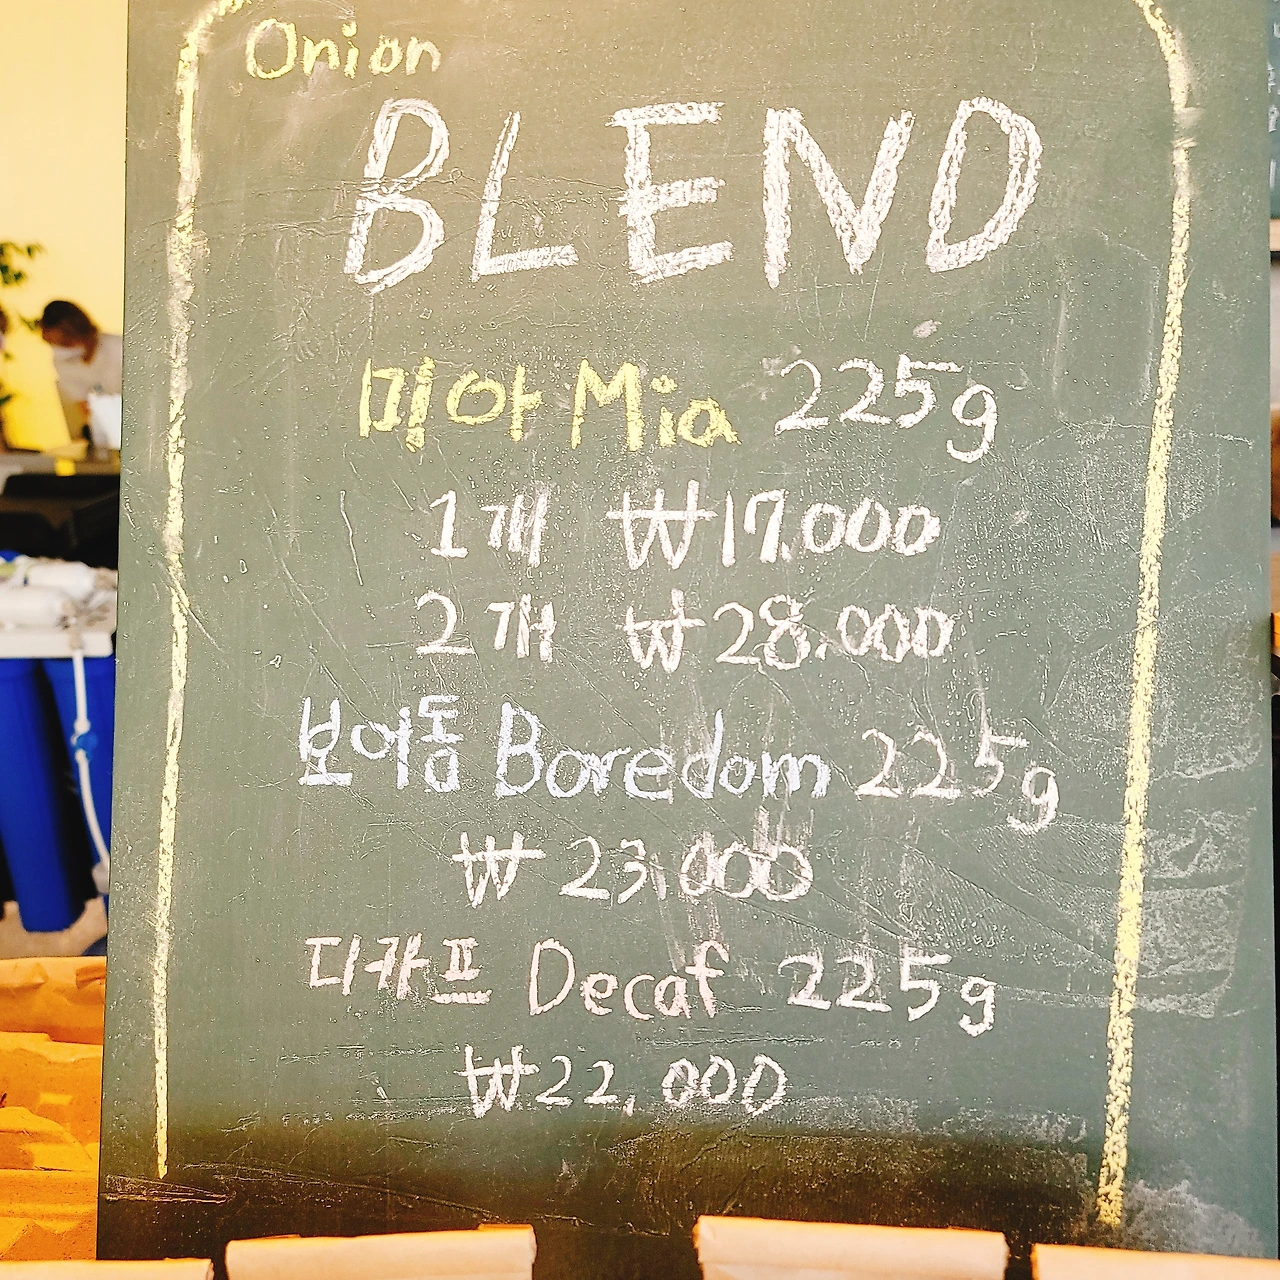 Onion
BLEND
미아 Mia 225g
1개 ₩17.000
2개 ₩28.000
보어돔 Boredom 225g
₩23.000
디카프 Decaf 225g
₩22,000